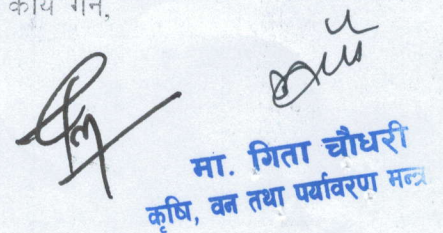 कार्य गर्ने,
मा. गिता चौधरी
कृषि, वन तथा पर्यावरण मन्त्र